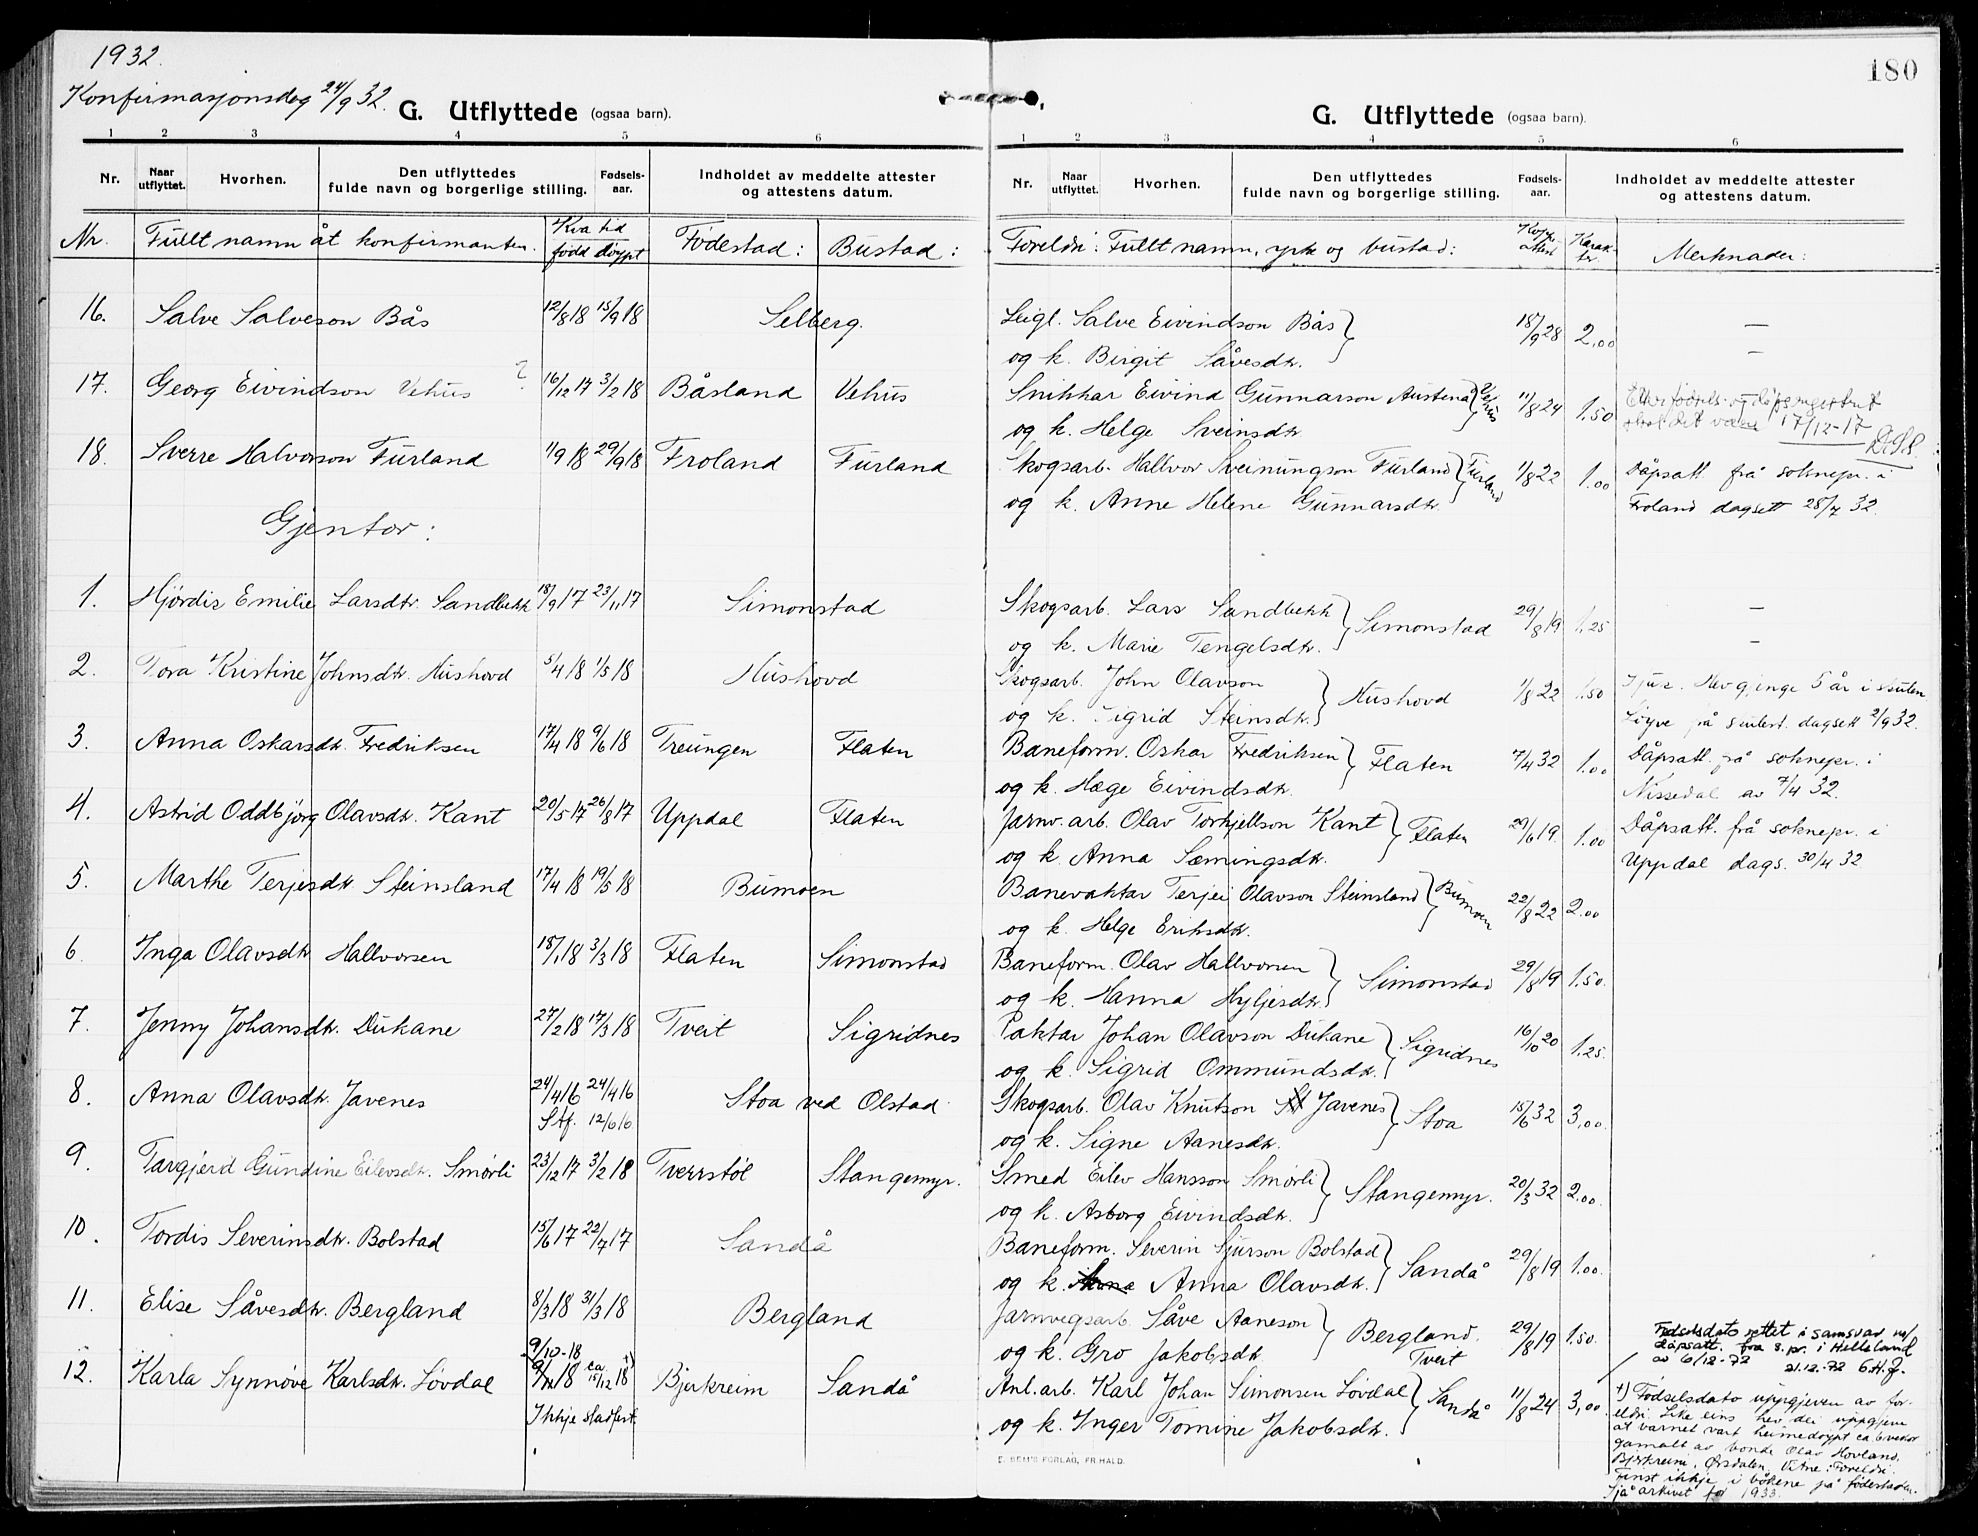 1932.
Konfirmasjonsdag 24/9 32.
G. Utflyttede (ogsaa barn).
1 2 3 4 5 6
Nr. Naar utflyttet. Hvorhen. Den utflyttedes fulde navn og borgerlige stilling. Fødsels-aar. Indholdet av meddelte attester og attestens datum.
Nr. Fullt namn åt konfirmanten. Kva tid fødd døypt Fødestad: Bustad:
16. Salve Salveson Bås 12/8 18 15/9 18 Selberg.
17. Georg Eivindson Vehus ? 16/12 17 3/2 18 Båsland Vehus
18. Sverre Halvorson Furland 1/9 18 29/9 18 Froland Furland
Gjentor:
1. Hjørdis Emilie Larsdtr. Sandbekk 18/9 17 23/11 17 Simonstad
2. Tora Kristine Johnsdtr. Hushovd 5/4 18 1/5 18 Hushovd
3. Anna Oskarsdtr. Fredriksen 17/4 18 9/6 18 Treungen Flaten
4. Astrid Oddbjørg Olavsdtr. Kant 20/5 17 26/8 17 Uppdal Flaten
5. Marthe Terjesdtr. Steinsland 17/4 18 19/5 18 Bumoen
6. Inga Olavsdtr. Hallvorsen 18/1 18 3/3 18 Flaten Simonstad
7. Jenny Johansdtr. Dukane 27/2 18 17/3 18 Tveit Sigridnes
8. Anna Olavsdtr. Javenes 24/4 16 24/4 16 Stoa ved Olstad
Stf. 12/6 16
9. Targjerd Gundine Eilevsdtr. Smørli 23/12 17 3/2 18 Tverrstøl Stangemyr.
10. Tordis Severinsdtr. Bolstad 15/6 17 22/7 17 Sandå
11. Elise Såvesdtr. Bergland 8/3 18 31/3 18 Bergland
9/10-18
12. Karla Synnøve Karlsdtr. Løvdal 9/11 18 ca 15/12 18 +) Bjerkreim Sandå
Ikkje stadfest.
180
G. Utflyttede (ogsaa barn).
1 2 3 4 5 6
Nr. Naar utflyttet. Hvorhen. Den utflyttedes fulde navn og borgerlige stilling. Fødsels-aar. Indholdet av meddelte attester og attestens datum.
Foreldri: Fullt namn, yrke og bustad: Karak-ter. Merknader:
Leigl. Salve Eivindson Bås 18/9 28 2,00 —
og k. Birgit Såvesdtr. —
Snikkar Eivind Gunnarson Austenå Vehus 11/8 24 1.50
og k. Helge Sveinsdtr. 17/12-17
Skogsarb. Hallvor Sveinungson Furland Furland 1/8 22 1.00 Dåpsatt. frå soknepr. i
og k. Anne Helene Gunnarsdtr. Froland dagsett 28/7 32.
Skogsarb. Lars Sandbekk Simonstad 29/8 19 1.25 —
og k. Marie Tengelsdtr. —
Skogsarb. John Olavson Hushovd 1/8 22 1.50 Hev gjenge 5 år i skulen
og k. Sigrid Steinsdtr. Løyve på dagsett 2/9 32.
Baneform. Oskar Fredriksen Flaten 7/4 32 1.00 Dåpsatt. frå soknepr. i
og k. Hæge Eivindsdtr. Nissedal av 7/4 32.
Jarnv.arb. Olav Torkjellson Kant Flaten 29/6 19. 1.00 Dåpsatt. frå soknepr. i
og k. Anna Sæmingsdtr. Uppdal dags. 30/4 32
Banevaktar Terjei Olavson Steinsland Bumoen 22/8 22 2.00
og k. Helge Eriksdtr.
Baneform. Olav Hallvorsen Simonstad 29/8 19 1.50.
og k. Hanna
Paktar Johan Olavson Dukane Sigridnes 16/10 20 1.25.
og k. Sigrid Ommundsdtr.
Skogsarb. Olav Knutson Javenes Stoa 15/6 32 3,00.
og k. Signe Aanesdtr.
Smed Eilev Hansson Smørli Stangemyr. 20/3 32 2.00.
og k. Asborg Eivindsdtr.
Baneform. Severin Sjurson Bolstad Sandå 29/8 19 1.00.
og k. Anna Olavsdtr.
Jarnvegsarb. Såve Aaneson Bergland. 29/8 19 1.50.
og k. Gro Jakobsdtr. Tveit
Anl.arb. Karl Johan Simonsen Løvdal Sandå 11/8 24 3,00
og k. Inger Tomine Jakobsdtr.
Fødselsdato rettet i samsvar m/
dåpsatt. fra s.pr. i Helleland
av 6/12-72 21.12.-72
+) Fødselsdato uppgjeven av for-
eldri. Like eins hev dei uppgjeve
at barnet vart heimedøypt ca 6 vekor
gamalt av bonde Olav Hovland,
Bjerkreim, Ørsdalen. Vitne: Foreldri.
Finst ikkje i bøkene på fødestaden.
Sjå arkivet for 1933.
E. SEM'S FORLAG, FR.HALD.